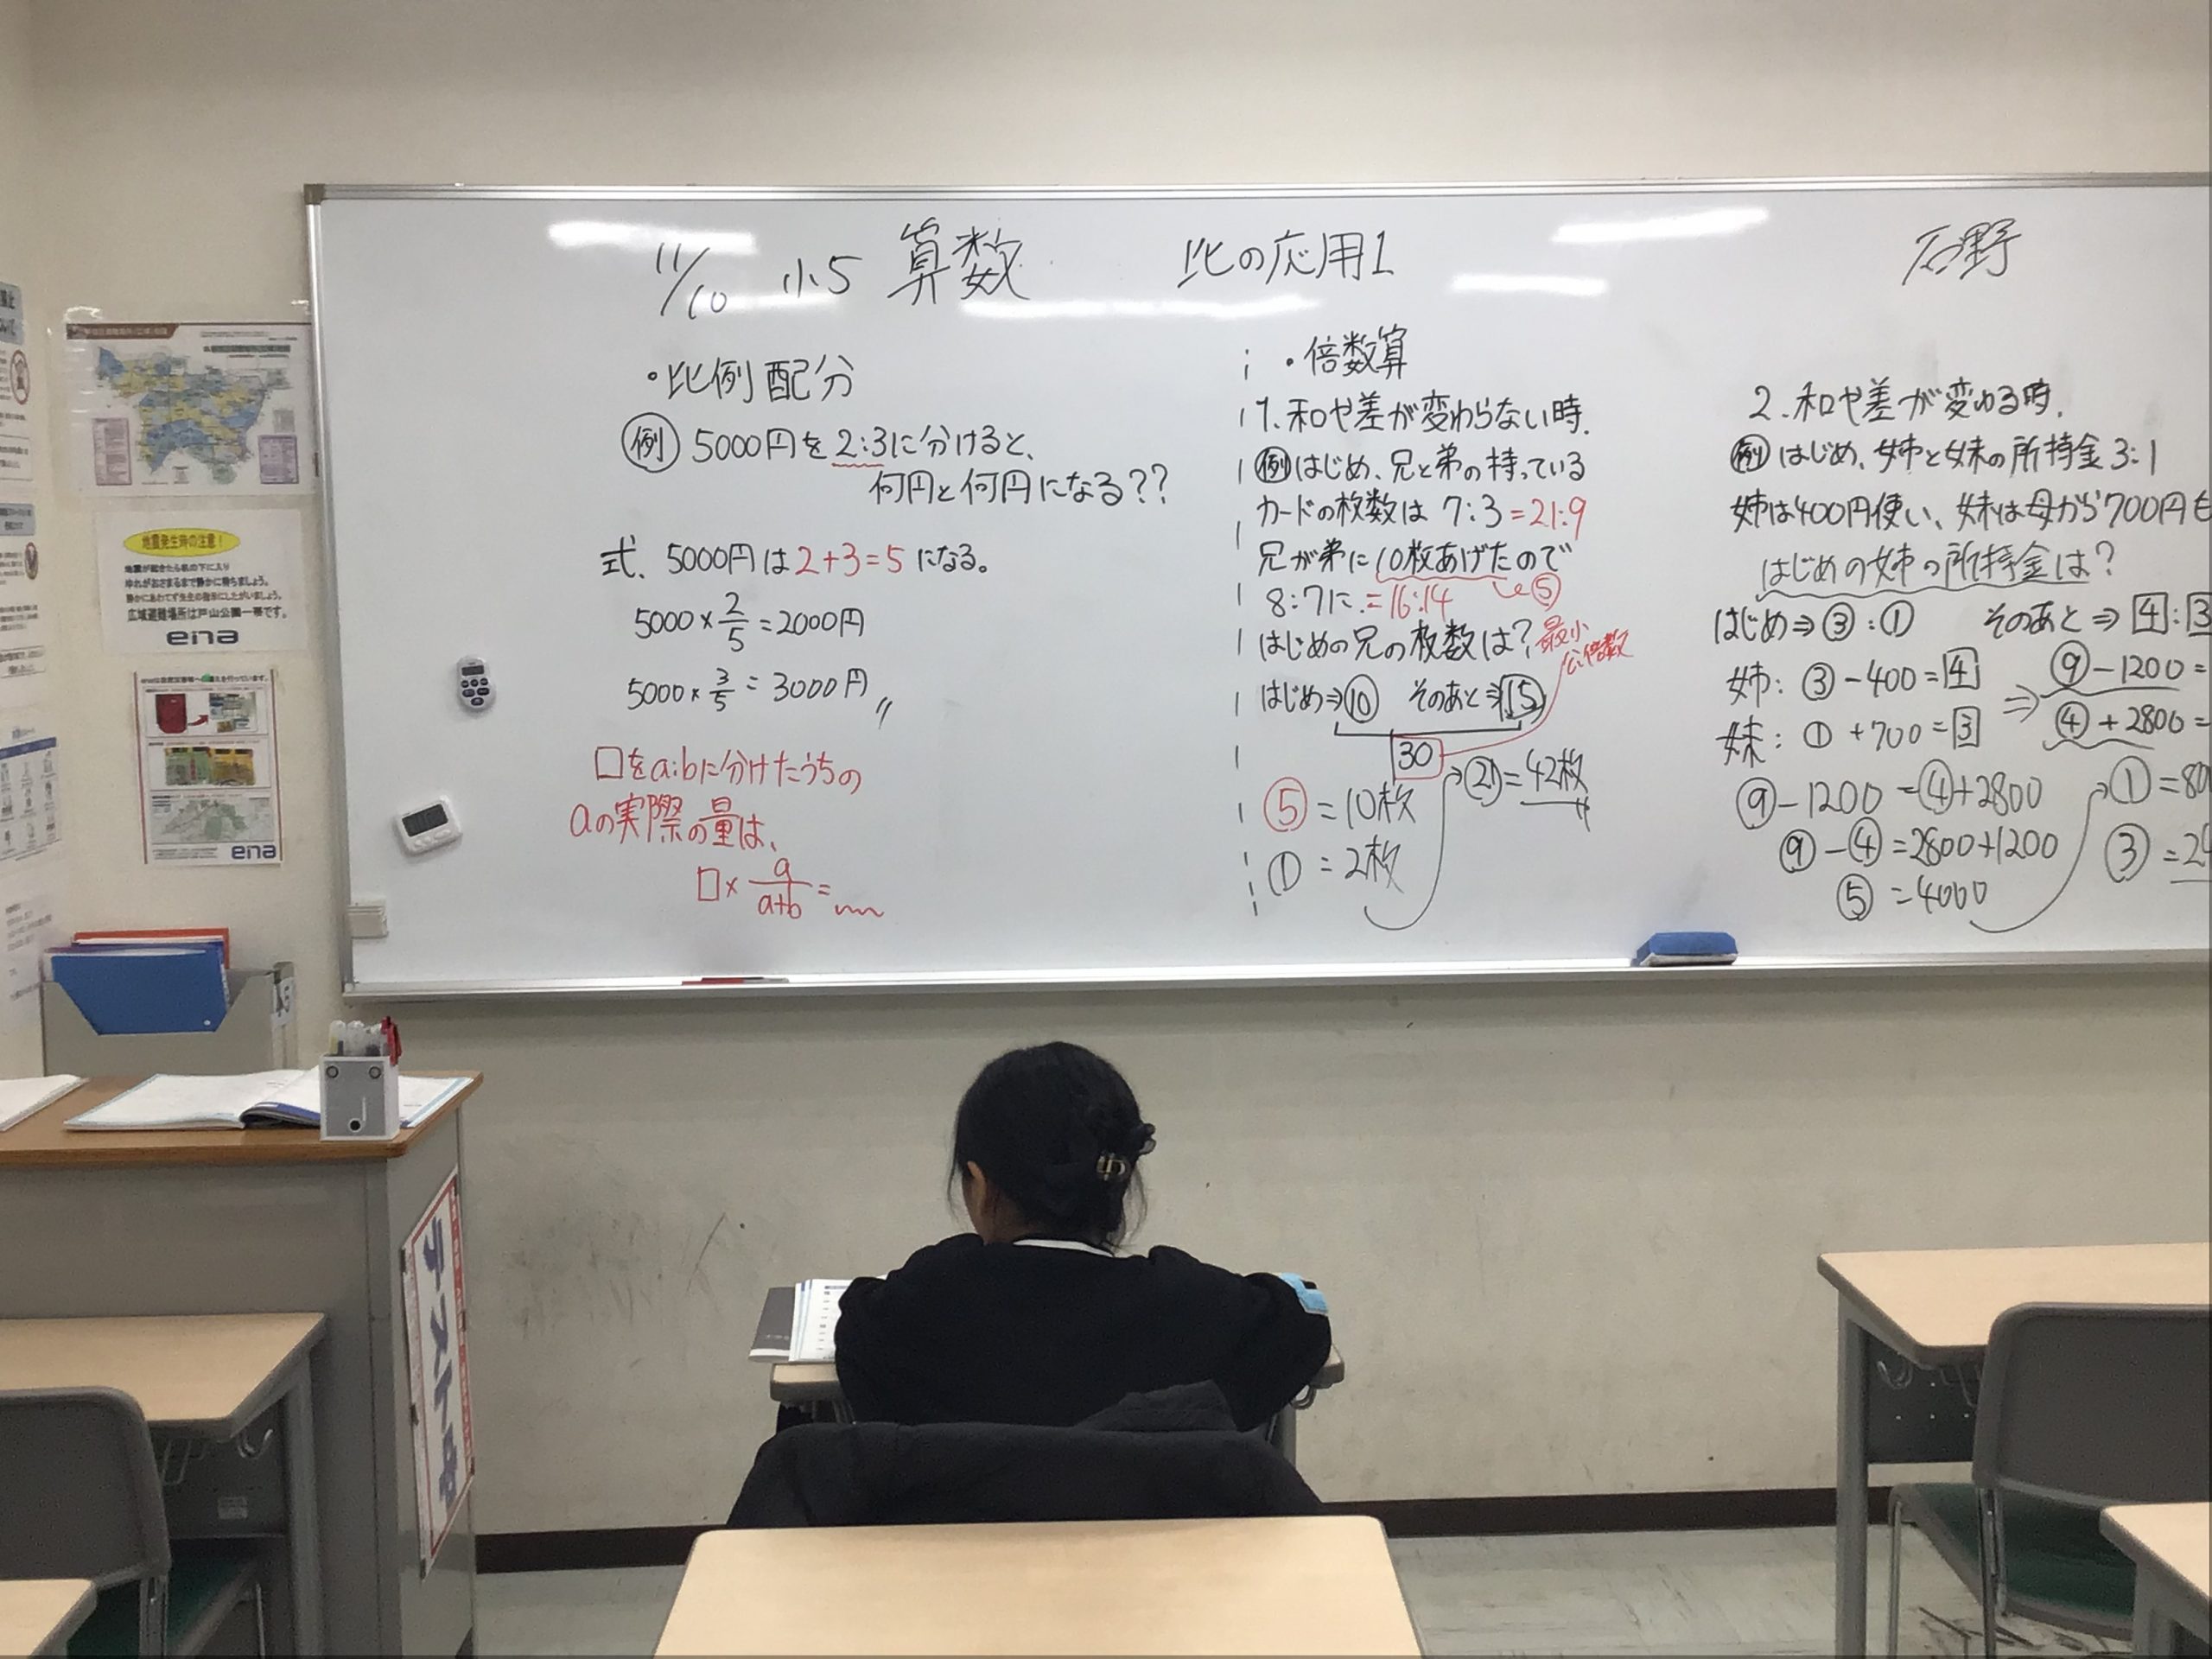 11/10 小5 算数 比の応用1 石野
・比例配分
例 5000円を2:3に分けると、
何円と何円になる??
式、5000円は2+3=5になる。
5000×2/5=2000円
5000×3/5=3000円
□をa:bに分けたうちの
aの実際の量は、
□×a/a+b=
・倍数算
1.和や差が変わらない時.
例 はじめ、兄と弟の持っている
カードの枚数は 7:3=21:9
兄が弟に10枚あげたので
⑤
8:7に.=16:14
はじめの兄の枚数は?
最小
公倍数
はじめ⇒⑩ そのあと⇒15
30
⑤=10枚
①=2枚
㉑=42枚
2.和や差が変わる時.
例 はじめ、姉と妹の所持金3:1
姉は400円使い、妹は母から700円も
はじめの姉の所持金は?
はじめ⇒③:① そのあと⇒4:3
姉:③-400=4 ⇒ ⑨-1200=
妹:①+700=3 ④+2800=
⑨-1200=④+2800
⑨-④=2800+1200
⑤=4000
①=80
③=24
地震発生時の注意!
地震が起きたら机の下に入り
ゆれがおさまるまで静かに待ちましょう。
静かにあわてず先生の指示にしたがいましょう。
広域避難場所は戸山公園一帯です。
ena
ena
テスト中